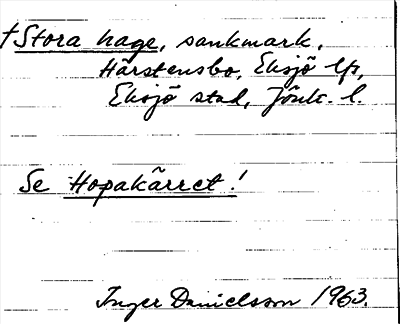 †Stora hage, sankmark,
Hårstensbo, Eksjö lfs,
Eksjö stad, Jönk. l.
Se Hopakärret!
Inger Danielsson 1963.